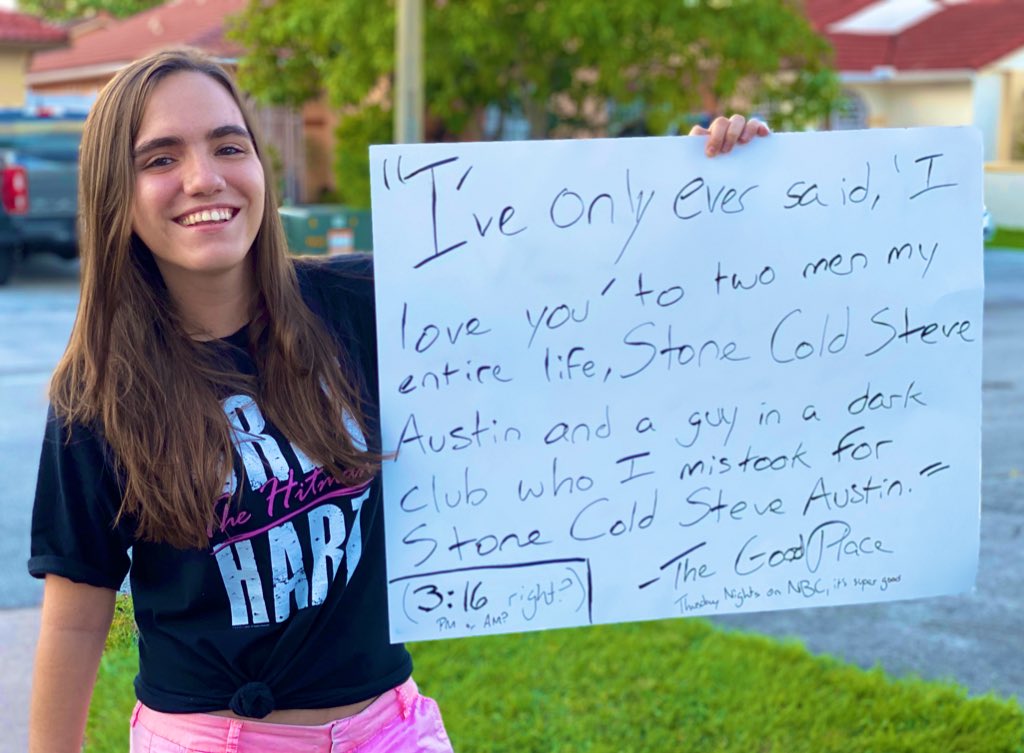 "I've only ever said, 'I
love you' to two men my
entire life, Stone Cold Steve
Austin and a guy in a dark
club who I mistook for
Stone Cold Steve Austin."
- The Good Place
Thursday Nights on NBC, it's super good
(3:16 right?)
PM or AM?
The Hitman
HART